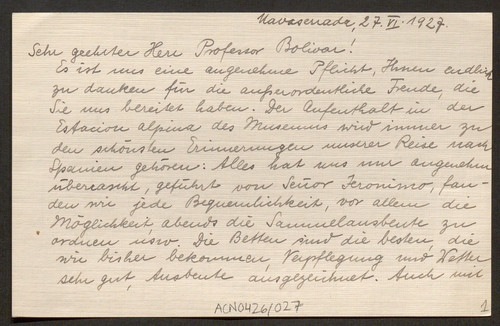 Navacerrada, 27.VI.1927.
Sehr geehrter Herr Professor Bolivar!
Es ist uns eine angenehme Pflicht, Ihnen endlich
zu danken für die außerordentliche Freude, die
Sie uns bereitet haben. Der Aufenthalt in der
Estacion alpina des Museums wird immer zu
den schönsten Erinnerungen unserer Reise nach
Spanien gehören: Alles hat uns nur angenehm
überrascht, geführt von Señor Jeronimo, fan-
den wir jede Bequemlichkeit, vor allem die
Möglichkeit, abends die Sammelausbeute zu
ordnen usw. Die Betten sind die besten, die
wir bisher bekommen, Verpflegung und Wetter
sehr gut, Ausbeute ausgezeichnet. Auch mit
ACN0426/027
1